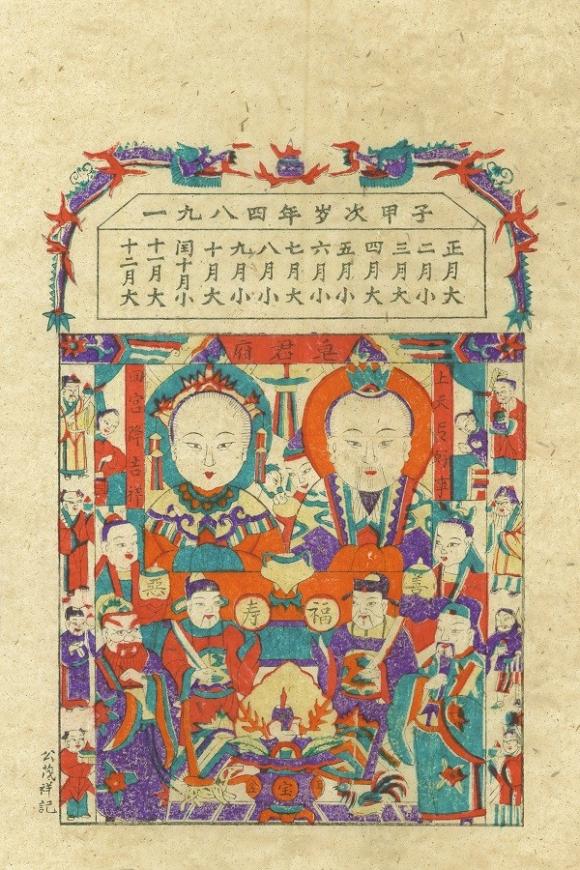 一九八四年岁次甲子
正月大
二月小
三月大
四月大
五月小
六月小
七月大
八月小
九月小
十月大
闰十月小
十一月大
十二月大
皂君府
上天言好事
回宮降吉祥
善
惡
福
寿
宝
公茂祥記